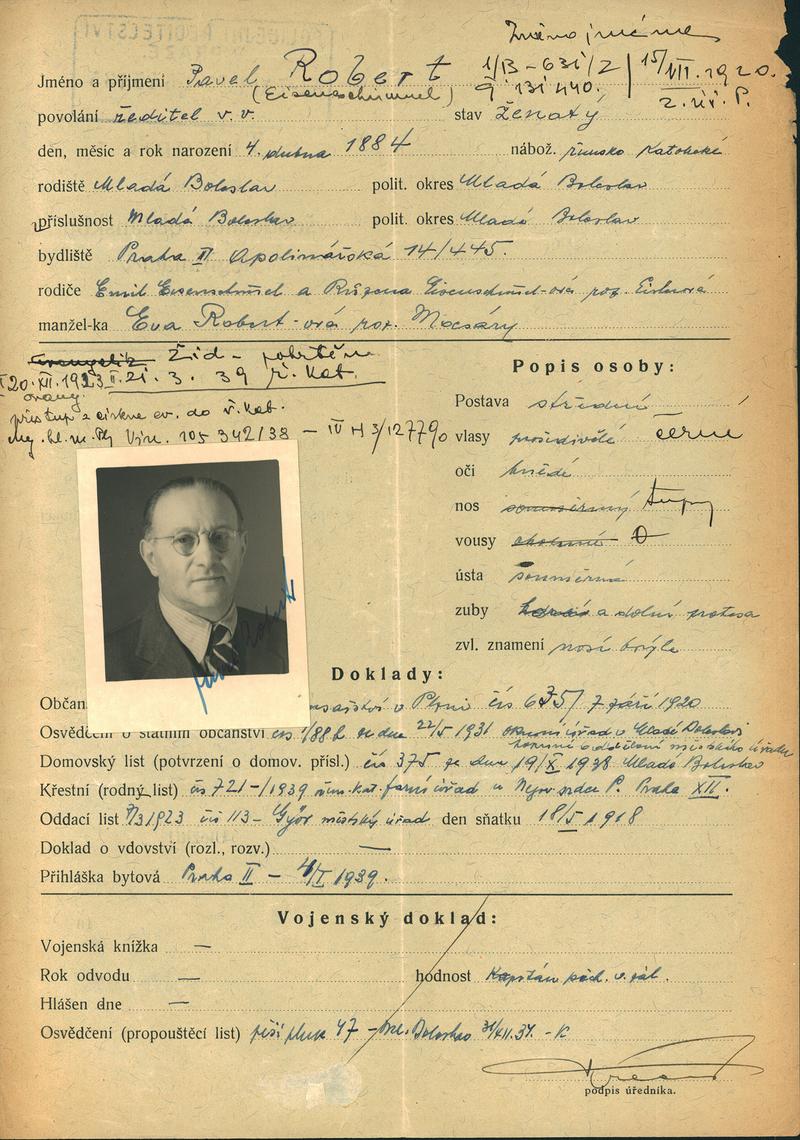 Změna jména
Jméno a příjmení Pavel Robert 1/13-631/2 15/VII.1920.
(Eisenschimmel) 131440. z.úř.P.
povolání ředitel v.v. stav ženatý
den, měsíc a rok narození 4. dubna 1884 nábož. římsko katolické
rodiště Mladá Boleslav polit. okres Mladá Boleslav
příslušnost Mladá Boleslav polit. okres Mladá Boleslav
bydliště Praha II Apolinářská 14/445.
rodiče Emil Eisenschimel a Růžena Eisenschimel-ová roz.
manžel-ka Eva Robert-ová roz. Mocsáry
Žid - pokřtěn
20.XII.1923 21.3.39 ř. kat.
evang.
přestup z církve ev. do ř. kat.
105342/38 - IV H3/12779
Popis osoby:
Postava střední
vlasy prošedivělé černé
oči hnědé
nos souměrný tupý
vousy oholené 0
ústa souměrná
zuby horní a dolní protesa
zvl. znamení nosí brýle
Pavel Robert
Doklady:
Občan. v Plzni čís 635/ 7 září 1920
Osvědčení o státním občanství čís 1/88 ze dne 22/5 1931 okresní úřad v Mladé Boleslavi
Domovský list (potvrzení o domov. přísl.) čís 375 ze dne 19/X 1938 Mladá Boleslav
Křestní (rodný list) čís 721-/1939 řím.kat. farní úřad u Nejsv. srdce P. Praha XII.
Oddací list 7/3 1923 čís 113- Györ městský úřad den sňatku 18/5 1918
Doklad o vdovství (rozl., rozv.) —
Přihláška bytová Praha II - 4/I 1939.
Vojenský doklad:
Vojenská knížka —
Rok odvodu — hodnost Kapitán pěch. v zál.
Hlášen dne —
Osvědčení (propouštěcí list) pěší pluk 47 - Ml. Boleslav 31/XII.34. -K
podpis úředníka.